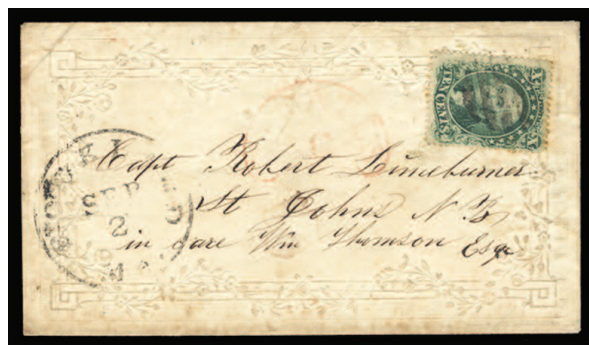 X X
TEN CENTS
Capt Robert Limeburner
St Johns N B
in care Wm Thomson Esqr
SEP
2